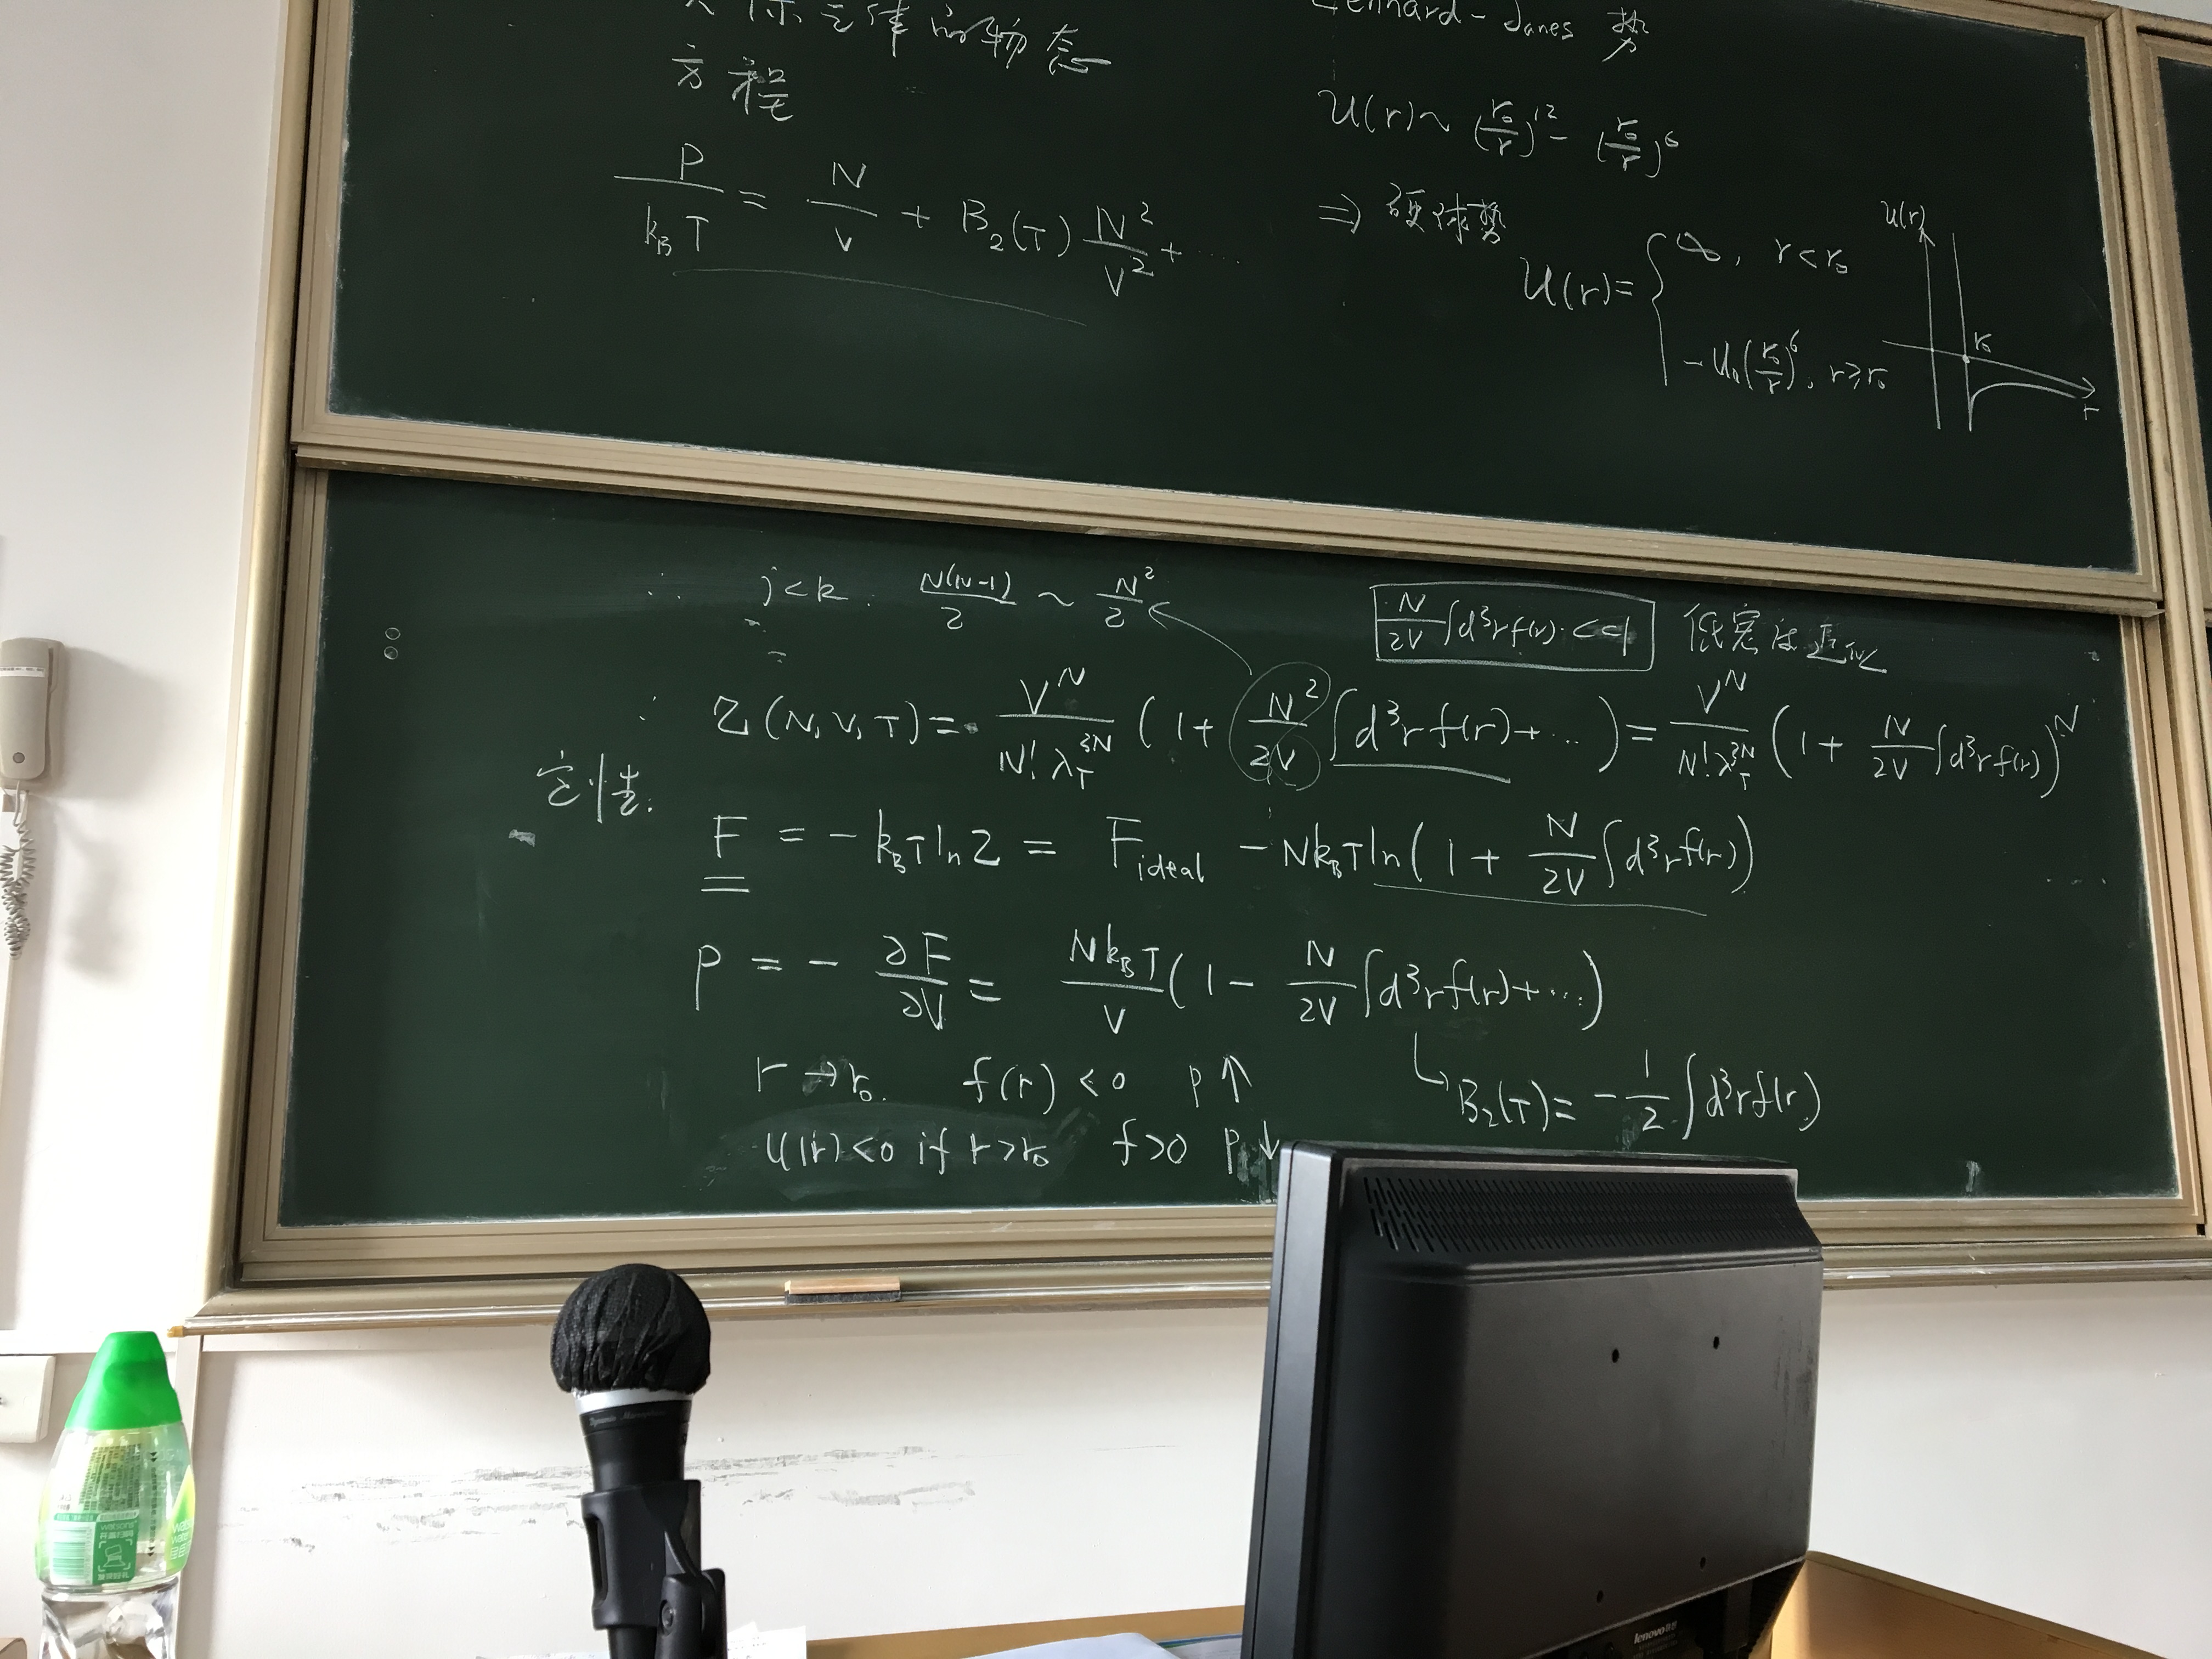 实际气体的物态
方程
P/(k_B T) = N/V + B_2(T) N^2/V^2 + ⋯
Lennard-Janes 势
U(r) ~ (r_0/r)^12 - (r_0/r)^6
⇒ 硬球势
U(r) = { ∞, r<r_0
-U_0(r_0/r)^6, r≥r_0
U(r)
r_0
r
∴ j<k. N(N-1)/2 ~ N^2/2
N/2V ∫d^3r f(r) <<1 低密度近似
∴ Z(N,V,T) = V^N/(N! λ_T^3N) (1 + N^2/2V ∫d^3r f(r) + ⋯) = V^N/(N! λ_T^3N) (1 + N/2V ∫d^3r f(r))^N
定性:
F = -k_B T ln Z = F_ideal - N k_B T ln(1 + N/2V ∫d^3r f(r))
P = - ∂F/∂V = N k_B T/V (1 - N/2V ∫d^3r f(r) + ⋯)
r → r_0. f(r) <0 P↑
↳ B_2(T) = -1/2 ∫d^3r f(r)
U(r) <0 if r>r_0 f>0 P↓
Dynamic Microphone
watsons
lenovo联想